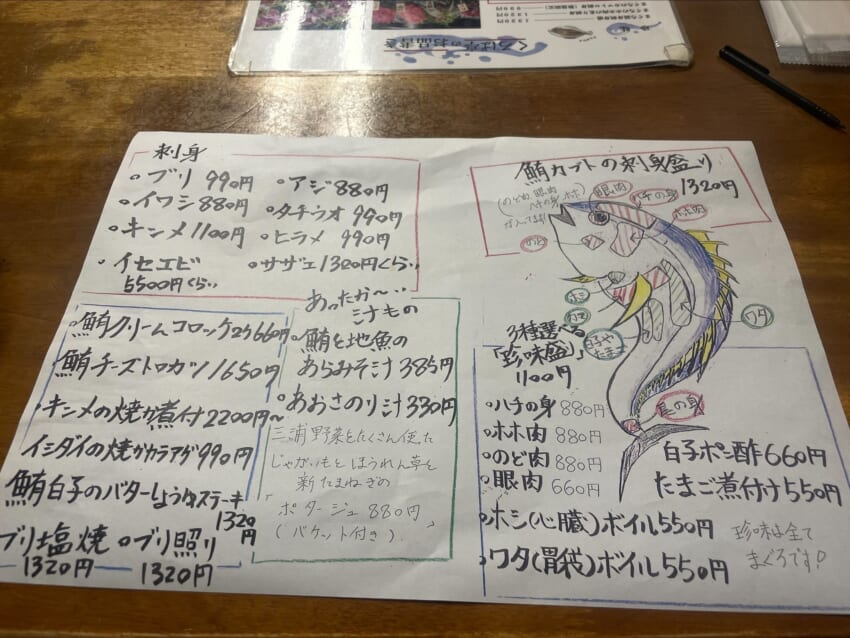 くろば亭のお品書き
刺身
・ブリ 990円
・アジ 880円
・イワシ 880円
・タチウオ 990円
・キンメ 1100円
・ヒラメ 990円
・イセエビ
5500円くらい
・サザエ 1320円くらい
・鮪クリームコロッケ2ケ660円
鮪チーズトロカツ1650円
・キンメの焼か煮付2200円~
イシダイの焼かカラアゲ990円
鮪白子のバターしょうゆステーキ
1320円
ブリ塩焼
1320円
・ブリ照り
1320円
あったか〜い
こなもの
・鮪と地魚の
あらみそ汁 385円
・あおさのり汁 330円
三浦野菜をたくさん使った
じゃがいもとほうれん草と
新たまねぎの
「ポタージュ 880円」
(バケット付き)
鮪カブトの刺身盛り
1320円
(のど肉、眼肉
ハチの身、ホホ
が入ってます)
眼肉
ハチの身
ホホ肉
のど
ホシ
カマ
白子や
たまご
ワタ
尾の身
3種選べる
「珍味盛」
1100円
・ハチの身 880円
・ホホ肉 880円
・のど肉 880円
・眼肉 660円
白子ポン酢 660円
たまご煮付け 550円
・ホシ(心臓)ボイル550円
・ワタ(胃袋)ボイル550円
珍味は全て
まぐろです!